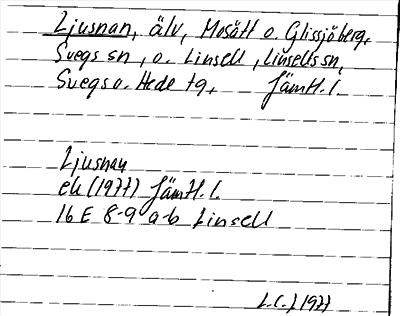 Ljusnan, älv, Mosätt o. Glissjöberg,
Svegs sn, o. Linsell, Linsells sn,
Svegs o. Hede tg, Jämtl. l.
Ljusnan
ek (1977) Jämtl. l.
16 E 8-9 a-b Linsell
L.C.J 1977